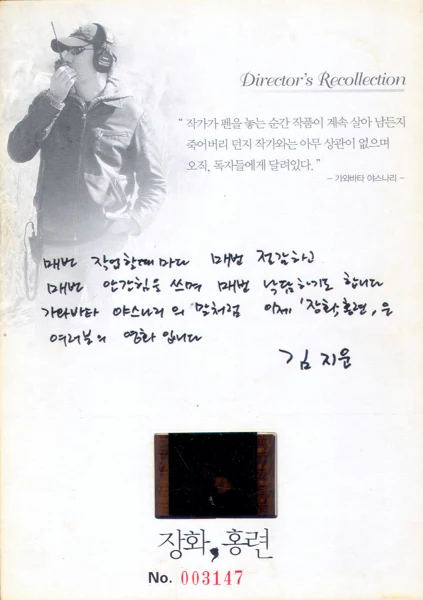 Director's Recollection
" 작가가 펜을 놓는 순간 작품이 계속 살아 남든지
죽어버리 던지 작가와는 아무 상관이 없으며
오직, 독자들에게 달려있다. "
- 가와바타 야스나리 -
매번 작업할때 마다 매번 절감하고
매번 안간힘을 쓰며 매번 낙담하기도 합니다
가와바타 야스나리 의 말처럼 이제 '장화,홍련' 은
여러분의 영화 입니다
김 지운
장화, 홍련
No. 003147